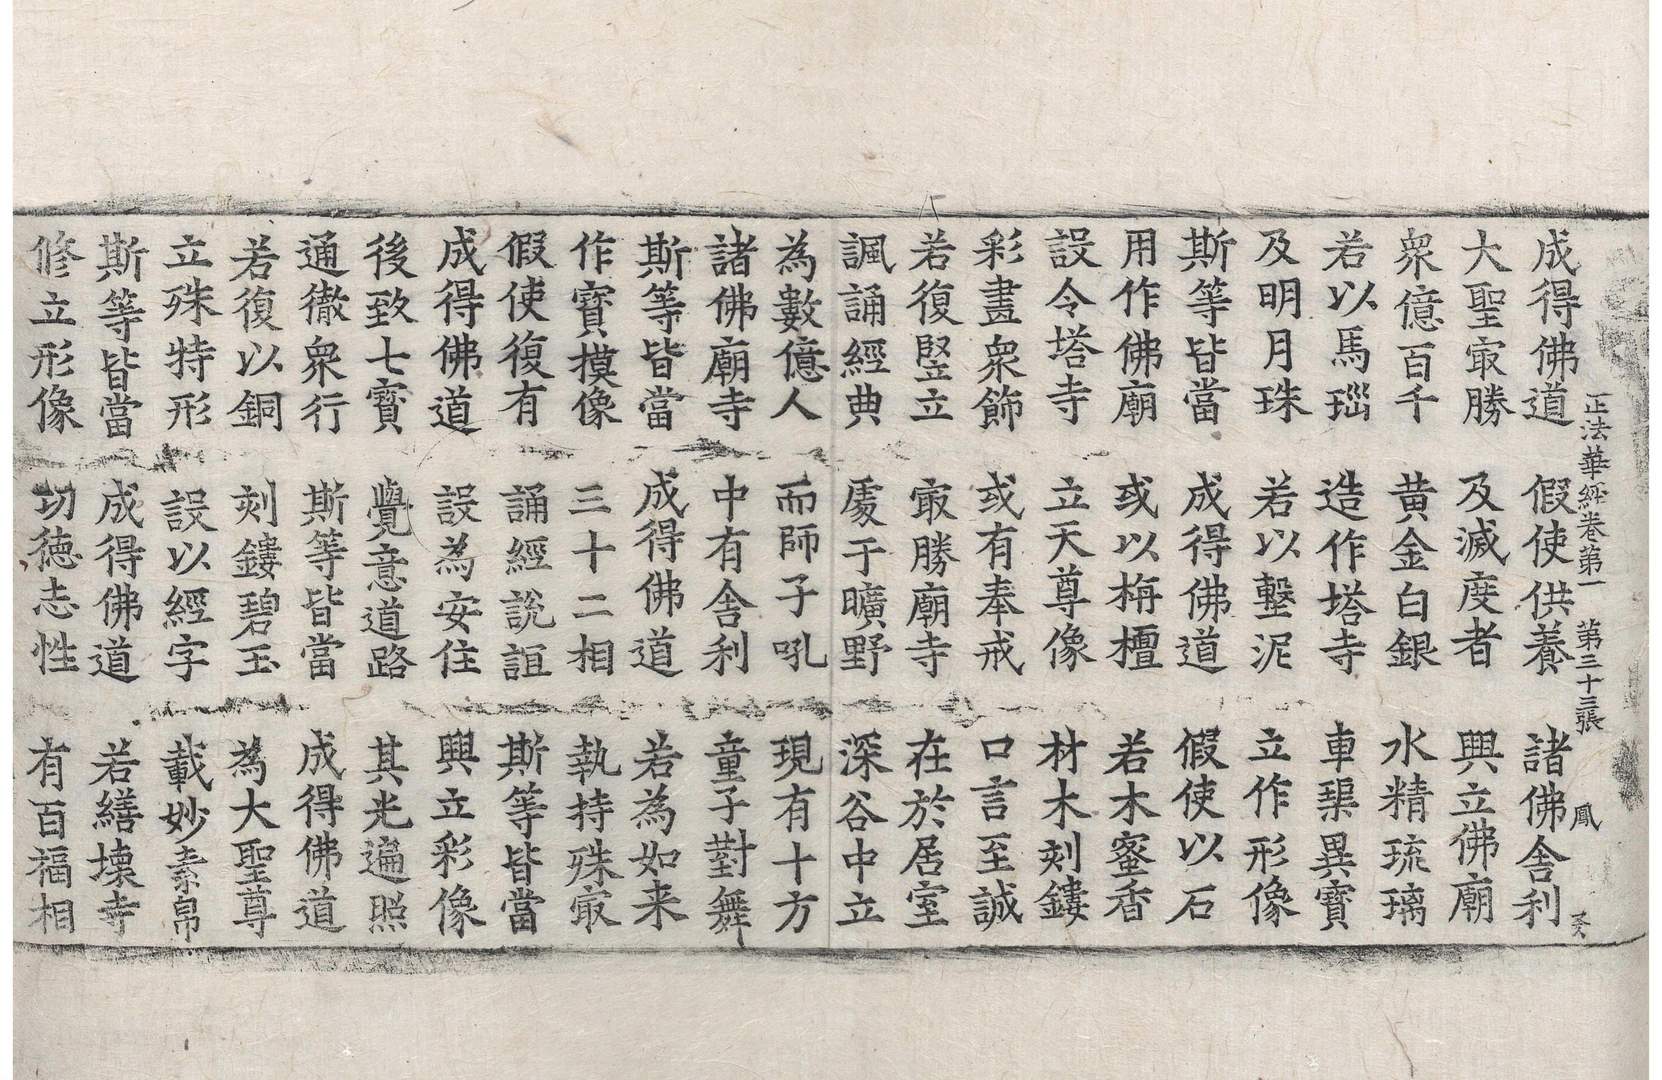 正法華經卷第一　第三十三張　鳳
成得佛道　假使供養　諸佛舍利
大聖㝡勝　及滅度者　興立佛廟
衆億百千　黄金白銀　水精琉璃
若以馬瑙　造作塔寺　車𤦲異寶
及明月珠　若以墼泥　立作形像
斯等皆當　成得佛道　假使以石
用作佛廟　或以栴檀　若木蜜香
設令塔寺　立天尊像　材木刻鏤
彩畫衆飾　或有奉戒　口言至誠
若復竪立　㝡勝廟寺　在於居室
諷誦經典　處于曠野　深谷中立
為數億人　而師子吼　現有十方
諸佛廟寺　中有舍利　童子對舞
斯等皆當　成得佛道　若為如来
作寶摸像　三十二相　執持殊㝡
假使復有　誦經說誼　斯等皆當
成得佛道　設為安住　興立彩像
後致七寶　覺意道路　其光遍照
通徹衆行　斯等皆當　成得佛道
若復以銅　刻鏤碧玉　為大聖尊
立殊特形　設以經字　載妙素帛
斯等皆當　成得佛道　若繕壞寺
修立形像　功德志性　有百福相